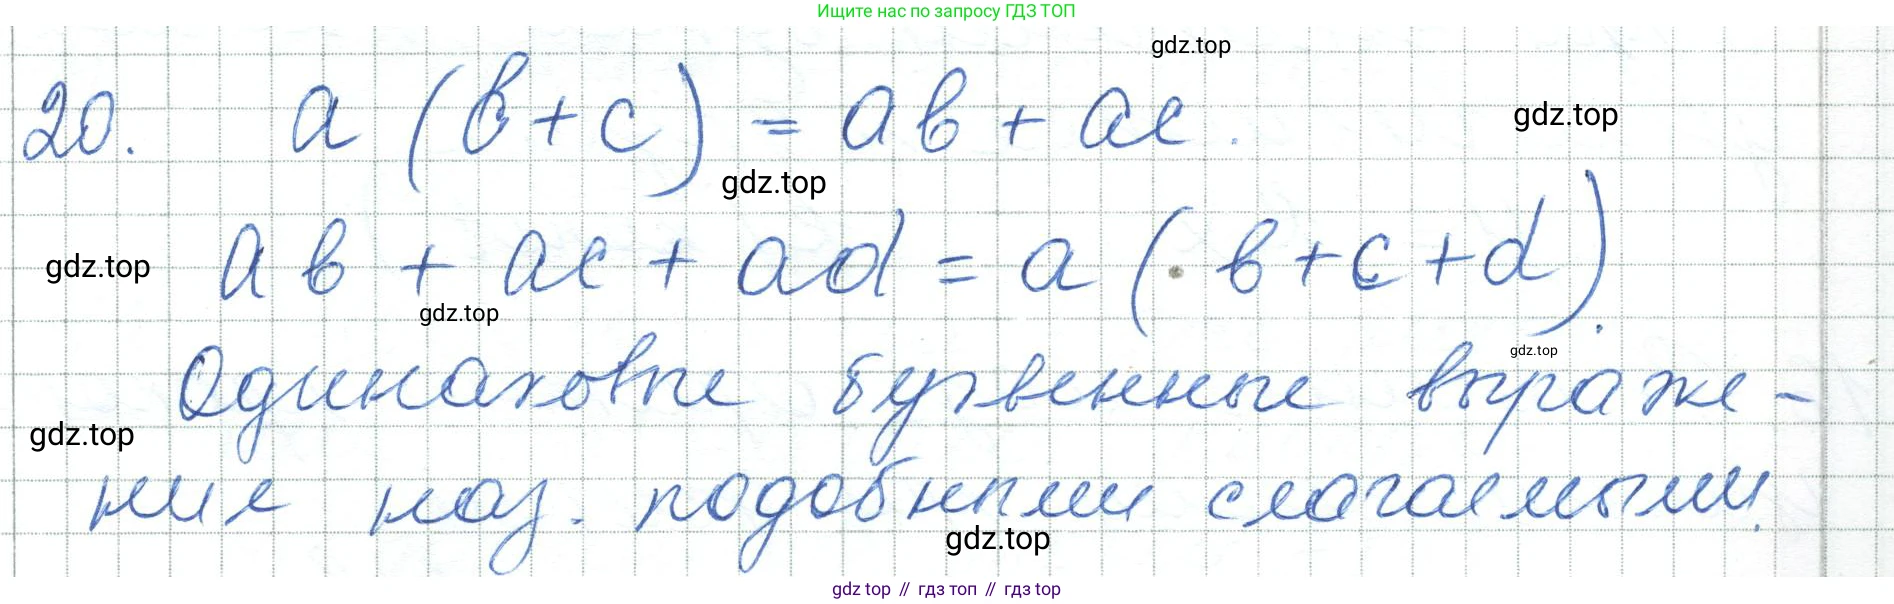 Ищите нас по запросу ГДЗ ТОП
gdz.top
20. a(b+c) = ab + ac.
gdz.top
gdz.top
gdz.top
ab + ac + ad = a(b+c+d).
gdz.top
gdz.top
Одинаковые буквенные выраже-
gdz.top
ние наз. подобными слагаемыми.
gdz.top
gdz top // гдз топ // гдз top